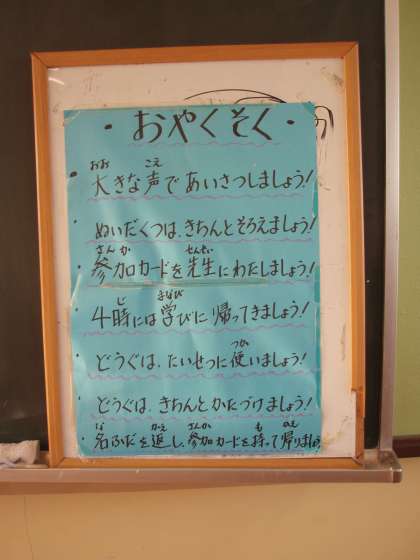 ・おやくそく・
・大きな声であいさつしましょう!
・ぬいだくつは、きちんとそろえましょう!
・参加カードを先生にわたしましょう!
・4時には学びに帰ってきましょう!
・どうぐは、たいせつに使いましょう!
・どうぐは、きちんとかたづけましょう!
・名ふだを返し、参加カードを持って帰りましょう